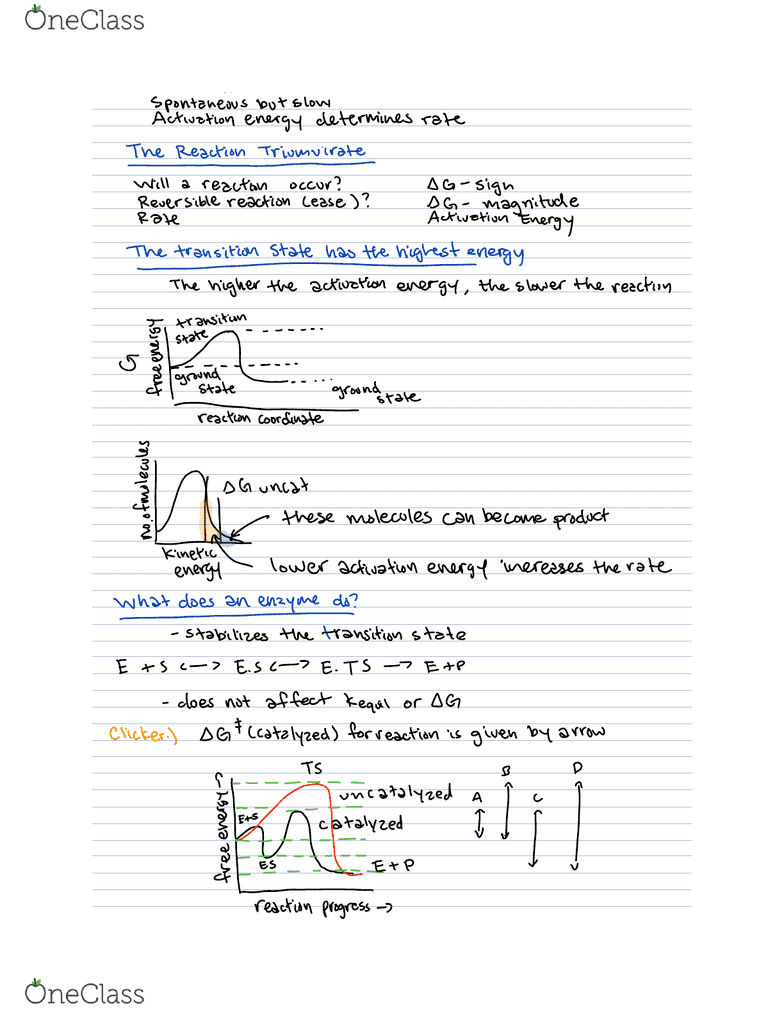 OneClass
Spontaneous but slow
Activation energy determines rate
The Reaction Triumvirate
Will a reaction occur? ΔG - sign
Reversible reaction (ease)? ΔG - magnitude
Rate Activation Energy
The transition State has the highest energy
The higher the activation energy, the slower the reaction
transition
state
G
free energy
ground
state
ground
state
reaction coordinate
no. of molecules
ΔG uncat
these molecules can become product
kinetic
energy
lower activation energy increases the rate
What does an enzyme do?
- stabilizes the transition state
E + S <-> E.S <-> E.TS -> E+P
- does not affect Kequil or ΔG
Clicker:) ΔG‡ (catalyzed) for reaction is given by arrow
TS
B D
uncatalyzed A C
E+S
catalyzed
free energy ->
ES
E+P
reaction progress ->
OneClass